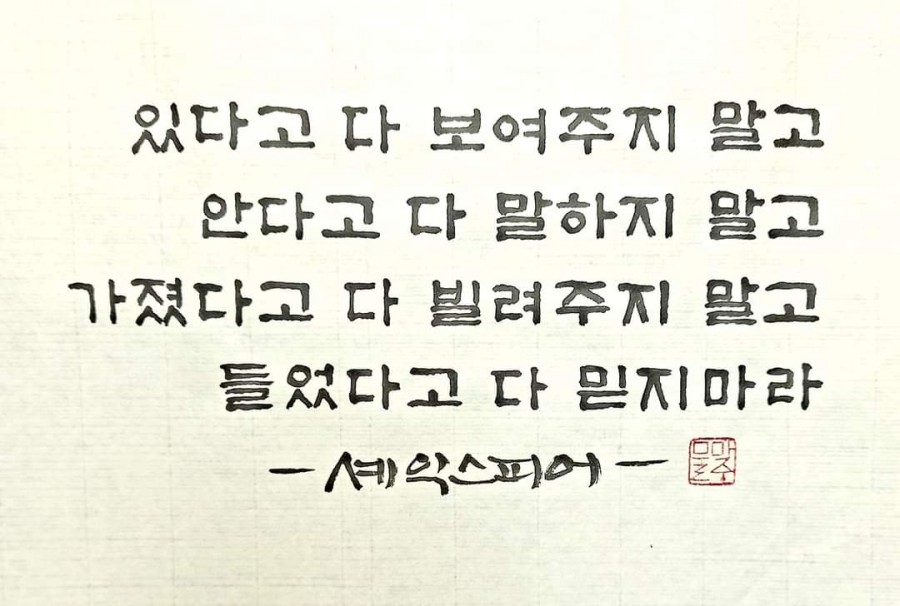 있다고 다 보여주지 말고
안다고 다 말하지 말고
가졌다고 다 빌려주지 말고
들었다고 다 믿지마라
- 셰익스피어 -